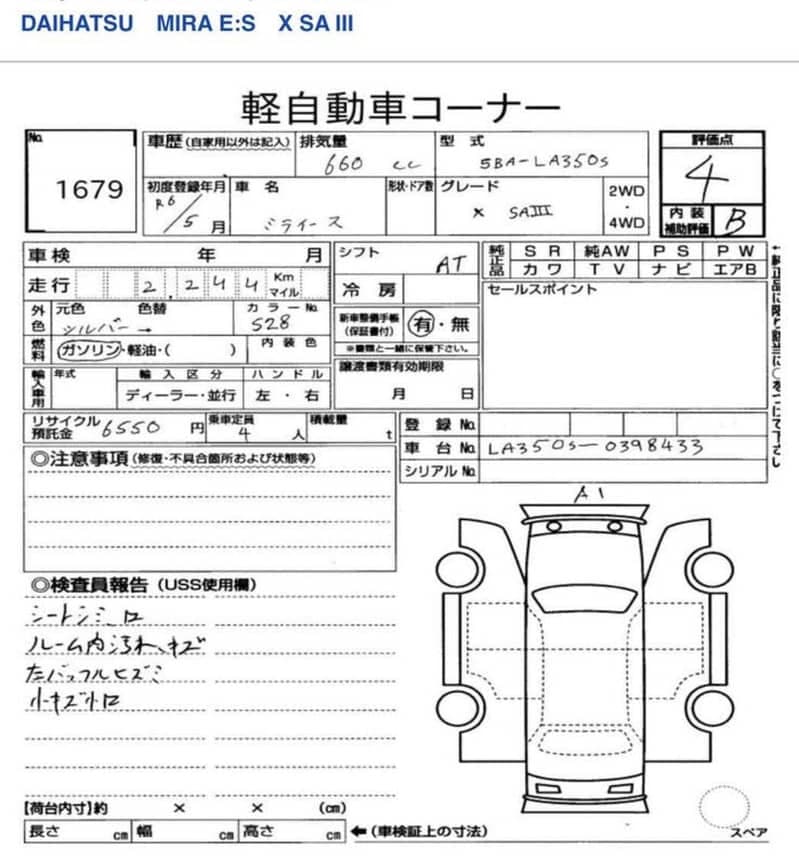 DAIHATSU MIRA E:S X SA III
軽自動車コーナー
No.
1679
車歴(自家用以外は記入)
排気量
660 cc
型式
5BA-LA350S
評価点
4
内装補助評価
B
初度登録年月
R6/5月
車名
ミライース
形状・ドア数
グレード
X SAIII
2WD・4WD
車検 年 月
走行 2,244 Km マイル
外色
元色 シルバー
色替 →
カラーNo. S28
燃料 ガソリン・軽油・( )
内装色
輸入車用
年式
輸入区分
ディーラー・並行
ハンドル
左・右
シフト AT
冷房
新車整備手帳(保証書付) 有・無
※書類と一緒に保管下さい。
譲渡書類有効期限
月 日
純正品
SR 純AW PS PW
カワ TV ナビ エアB
セールスポイント
←純正品に限り該当に○をつけて下さい
リサイクル預託金 6550円
乗車定員 4人
積載量 t
登録No.
車台No. LA350S-0398433
シリアルNo.
◎注意事項(修復・不具合箇所および状態等)
A1
◎検査員報告(USS使用欄)
シートシミ、コ
ルーム内汚れ、キズ
右バッフルヒズミ
小キズ小凹
【荷台内寸】約 × × (cm)
長さ cm 幅 cm 高さ cm ←(車検証上の寸法)
スペア